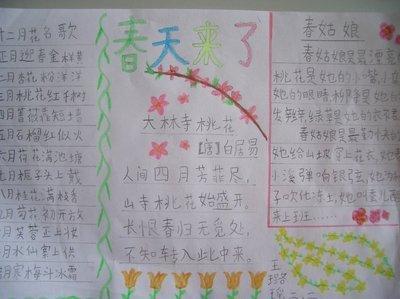 十二月花名歌
正月迎春金样黄
二月杏花粉洋洋
三月桃花红千树
四月蔷薇靠短墙
五月石榴红似火
六月荷花满池塘
七月栀子头上戴
八月桂花满枝香
九月菊花初开放
十月芙蓉正上妆
十一月水仙案上供
十二月寒梅斗冰霜
春天来了
大林寺桃花
【唐】白居易
人间四月芳菲尽,
山寺桃花始盛开。
长恨春归无觅处,
不知转入此中来。
春姑娘
春姑娘是最漂亮
桃花是她的小嘴,小
她的眼睛,粉蝶是她
她的衣
春姑娘是最
她给山坡穿上花衣,她
小溪弹响银弦,她
子吹化冻土,她叫
来上班……
王
璐
瑶